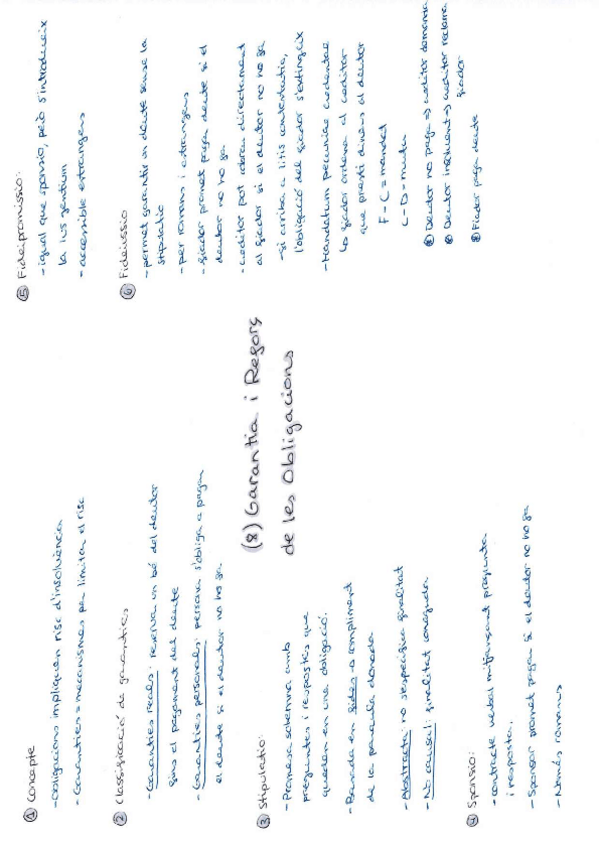 (8) Garantia i Reforç
de les Obligacions
① Concepte
- obligacions impliquen risc d'insolvència
- Garanties = mecanismes per limitar el risc
② Classificació de garanties
- Garanties reals: reserva un bé del deutor
fins al pagament del deute
- Garanties personals: persona s'obliga a pagar
el deute si el deutor no ho fa
③ Stipulatio:
- Promesa solemne amb
preguntes i respostes que
queden en una obligació.
- Basada en fides → compliment
de la paraula donada
- Abstracta: no s'especifica finalitat
- No causal: finalitat coneguda
④ Sponsio:
- contracte verbal mitjançant pregunta
i resposta.
- Sponsor promet pagar si el deutor no ho fa
- Només romans
⑤ Fideipromissio:
- igual que sponsio, però s'introdueix
la ius gentium
- accessible estrangers
⑥ Fideiussio
- permet garantir un deute sense la
stipulatio
- per romans i estrangers
- fiador promet pagar deute si el
deutor no ho fa
- creditor pot reclamar directament
al fiador si el deutor no ho fa
- si arriba a litis contestatio,
l'obligació del fiador s'extingeix
- Mandatum pecuniae credendae
↳ fiador ordena al creditor
que presti diners al deutor
F - C = mandat
C - D = mutu
① Deutor no paga → creditor demanda
② Deutor insolvent → creditor reclama
fiador
③ Fiador paga deute